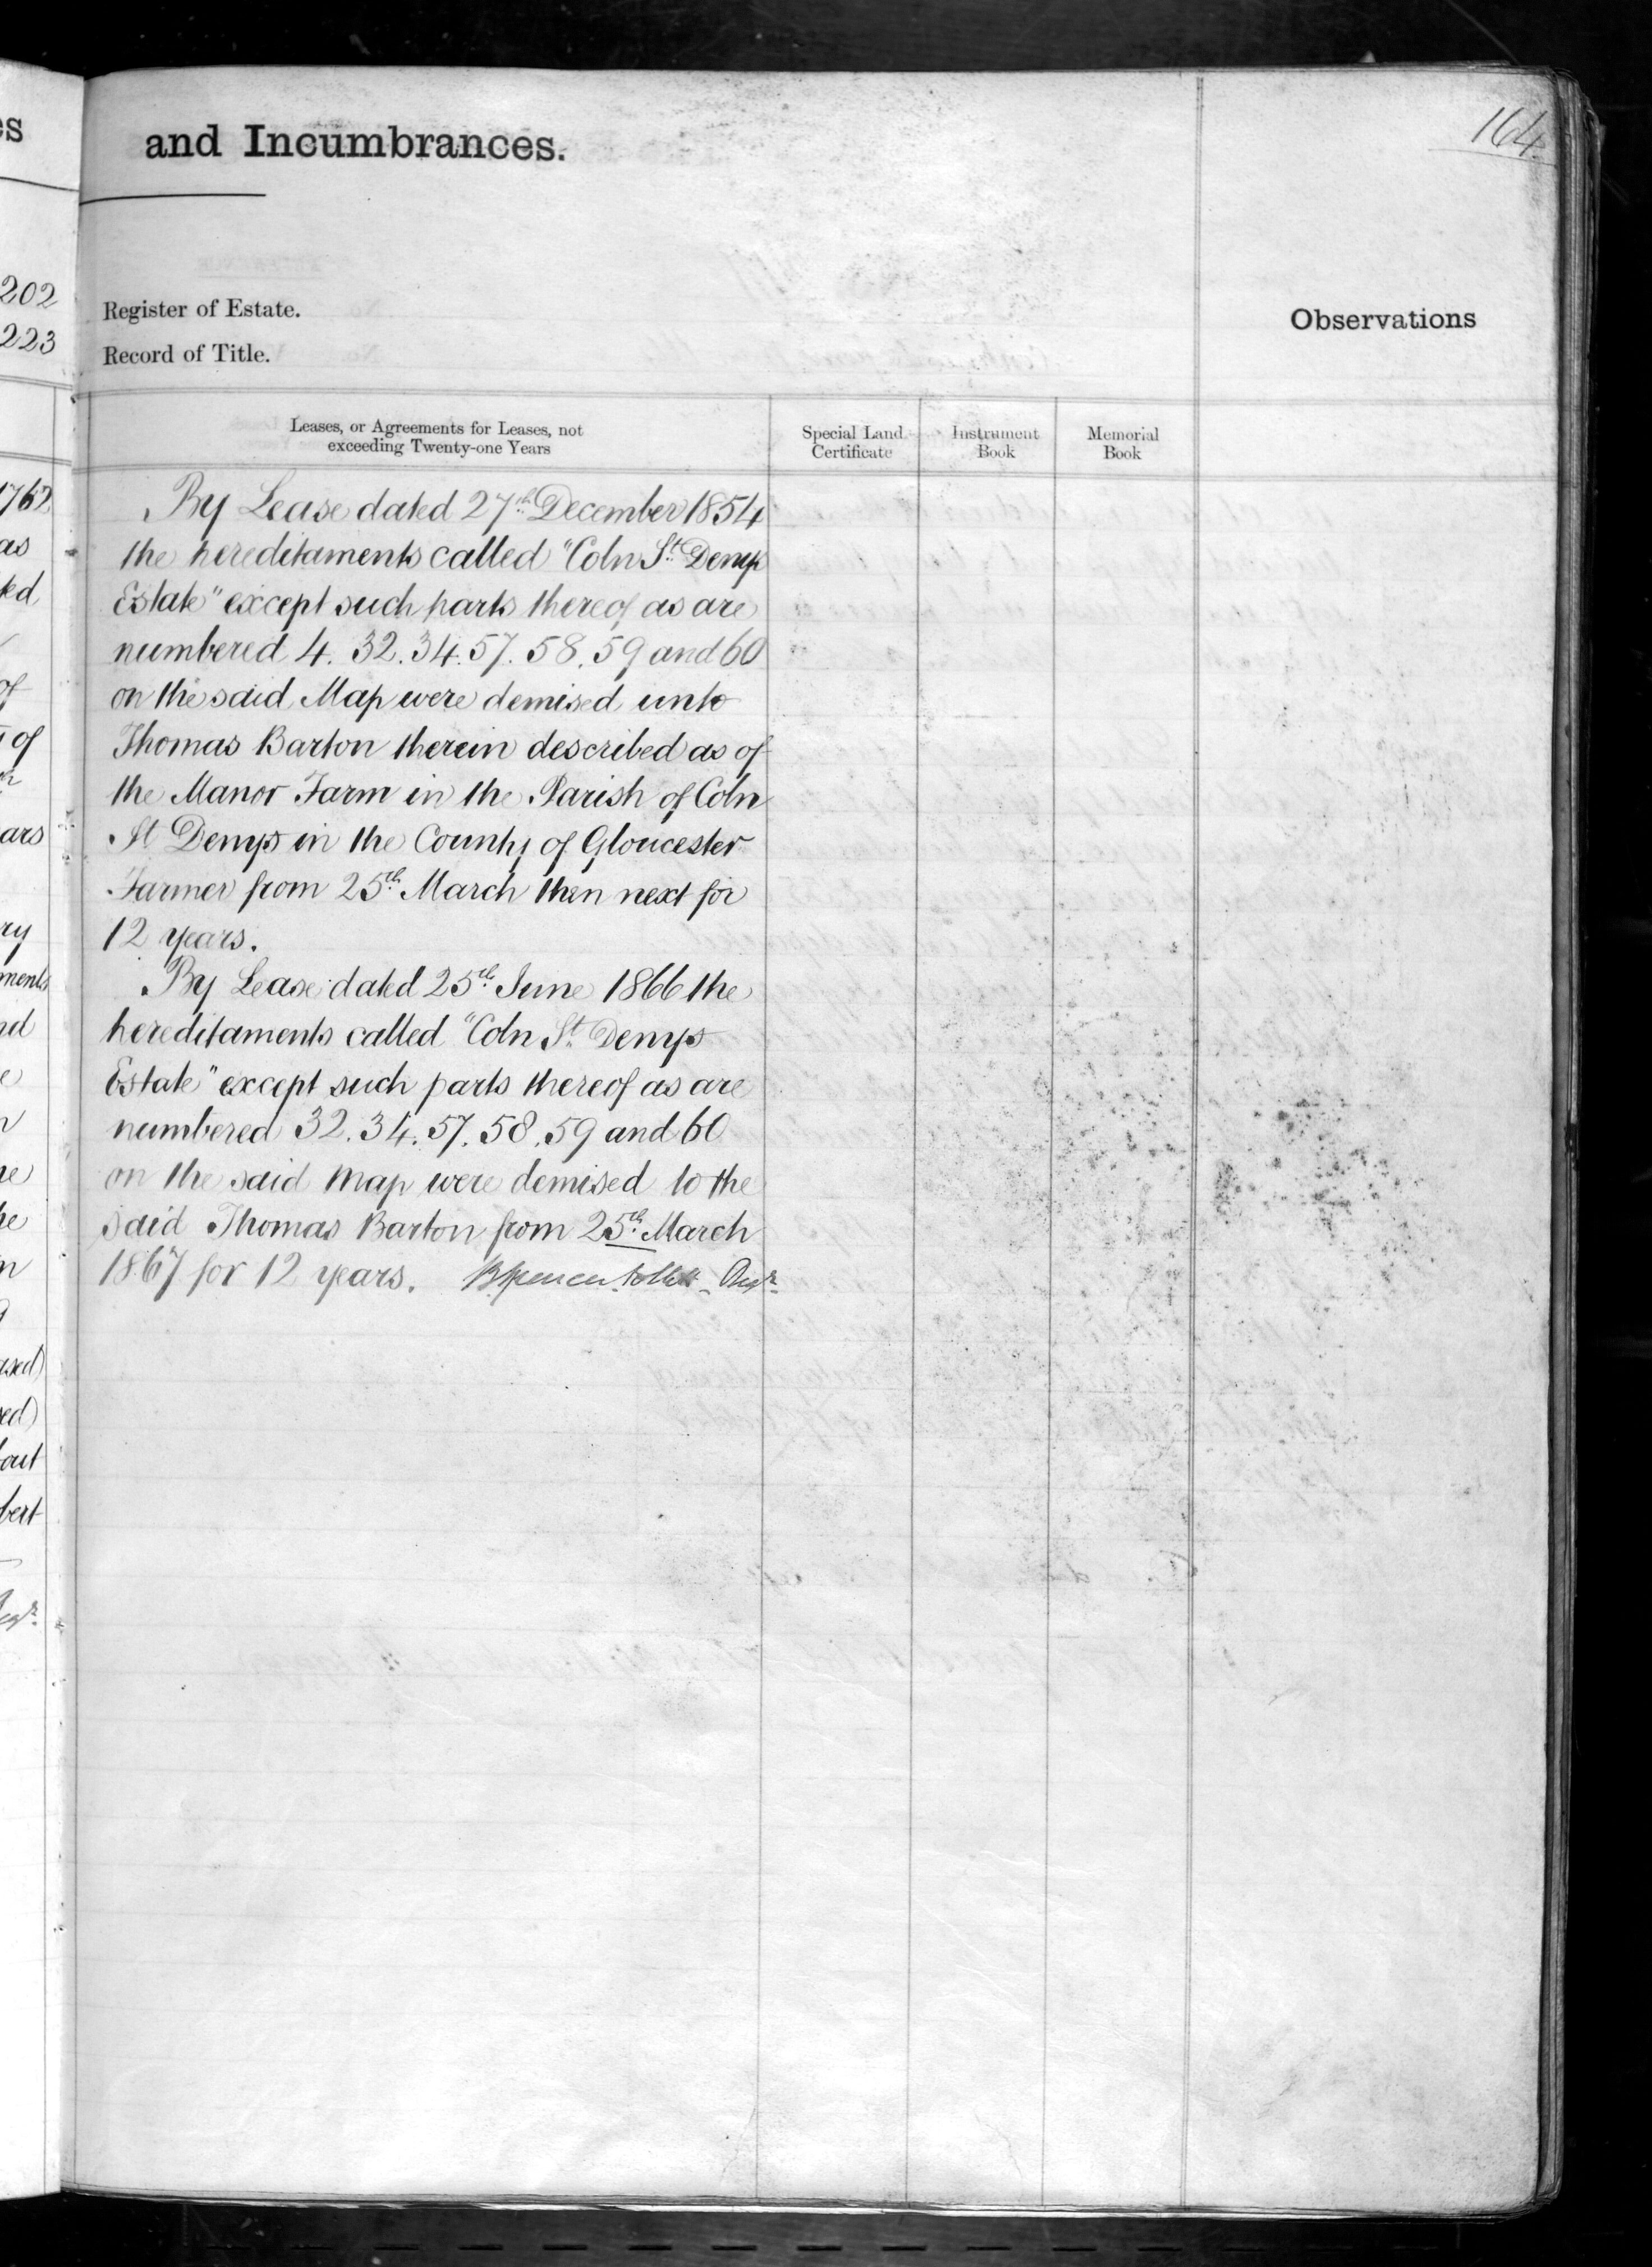 es
202
223
1762
as
ted
of
of
ars
ry
ments
nd
e
n
he
he
n
ased)
sed)
bout
bert
Regr.
and Incumbrances.
164
Register of Estate.
Record of Title.
Observations
Leases, or Agreements for Leases, not
exceeding Twenty-one Years
Special Land
Certificate
Instrument
Book
Memorial
Book
By Lease dated 27th December 1854
the hereditaments called "Coln St Denys
Estate" except such parts thereof as are
numbered 4. 32. 34. 57. 58. 59 and 60
on the said Map were demised unto
Thomas Barton therein described as of
the Manor Farm in the Parish of Coln
St Denys in the County of Gloucester
Farmer from 25th March then next for
12 years.
By Lease dated 25th June 1866 the
hereditaments called "Coln St Denys
Estate" except such parts thereof as are
numbered 32. 34. 57. 58. 59 and 60
on the said Map were demised to the
said Thomas Barton from 25th March
1867 for 12 years. B Spencer Follett - Regr.